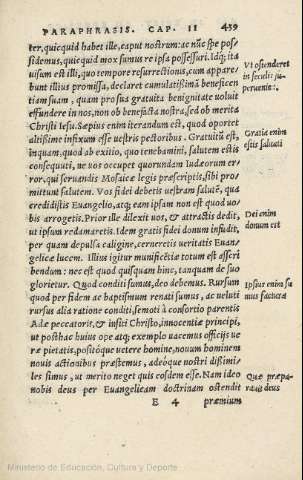 PARAPHRASIS. CAP. II 439
ter, quicquid habet ille, caput nostrum: ac nũc spe pos-
sidemus, quicquid mox sumus re ipsa possessuri. Idq; ita
uisum est illi, quo tempore resurrectionis, cum appare-
bunt illius promissa, declaret cumulatissimã beneficen
tiam suam, quam prosus gratuita benignitate uoluit
effundere in nos, non ob benefacta nostra, sed ob merita
Christi Iesu. Sæpius enim iterandum est, quod oportet
altissime infixum esse uestris pectoribus. Gratuitũ est,
inquam, quod ab exitio, quo tenebamini, salutem estis
consequuti, ne uos occupet quorundam Iudæorum er-
ror, qui seruandis Mosaicæ legis præscriptis, sibi pro-
mittunt salutem. Vos fidei debetis uestram salutẽ, qua
credidistis Euangelio, atq; eam ipsam non est quod uo-
bis arrogetis. Prior ille dilexit uos, & attractis dedit,
ut ipsum redamaretis. Idem gratis fidei donum infudit,
per quam depulsa caligine, cerneretis ueritatis Euan-
gelicæ lucem. Illius igitur munificẽtiæ totum est ascri
bendum: nec est quod quisquam hinc, tanquam de suo
glorietur. Quod conditi sumus, deo debemus. Rursum
quod per fidem ac baptismum renati sumus, ac ueluti
rursus alia ratione conditi, semoti à consortio parentis
Adæ peccatoris, & insiti Christo, innocentiæ principi,
ut posthac huius ope atq; exemplo uacemus officijs ue
ræ pietatis, positóque uetere homine, nouum hominem
nouis actionibus præstemus, adeóque nostri dißimi-
les simus, ut merito neget quis eosdem esse. Nam ideo
nobis deus per Euangelicam doctrinam ostendit
E 4 præmium
Vt ostenderet
in seculis su-
peruenie.
Gratia enim
estis saluati
Dei enim
donum est
Ipsius enim su
mus factura
Quæ præpa-
rauit deus
Ministerio de Educación, Cultura y Deporte